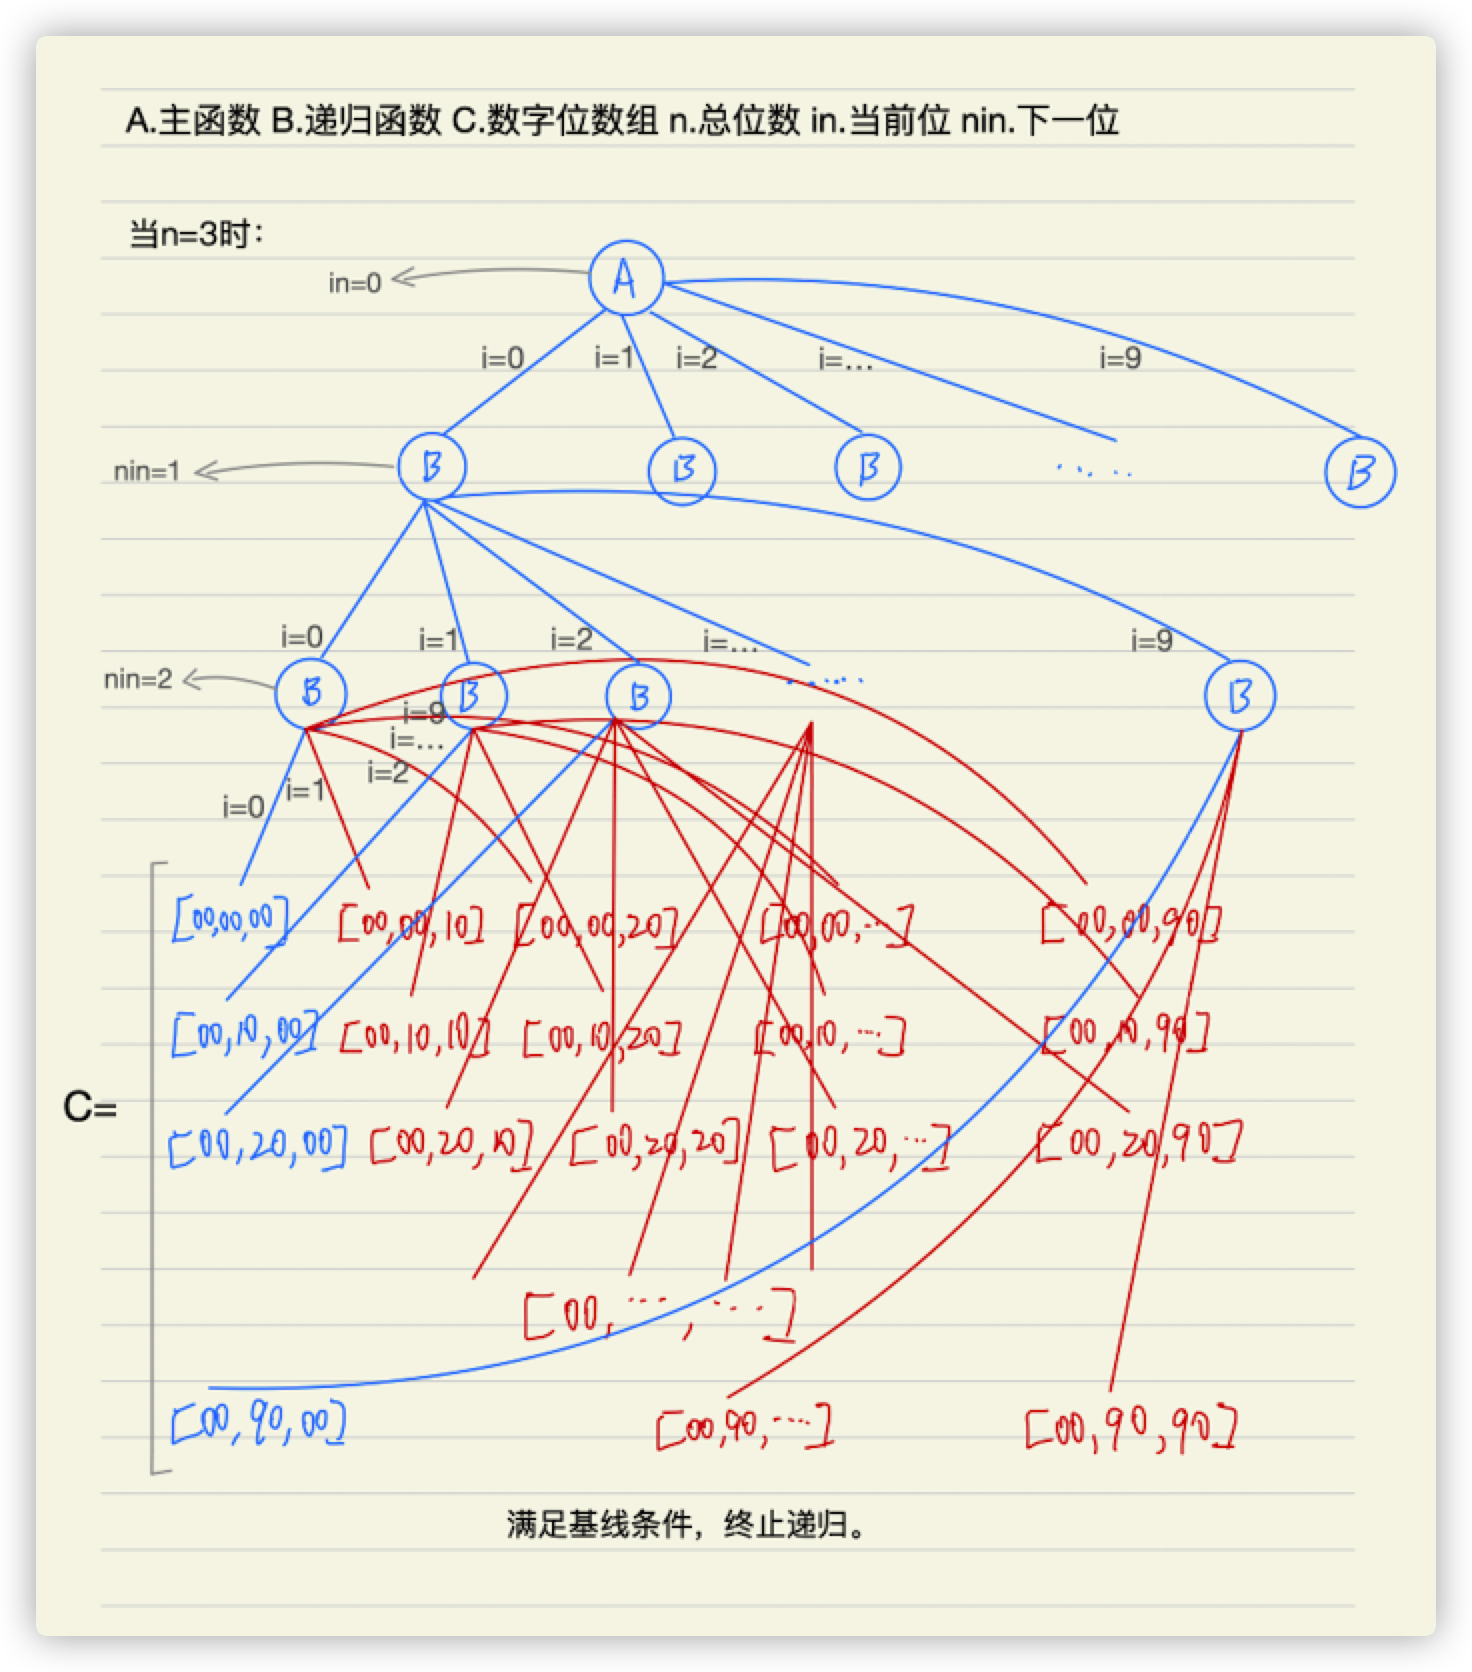 A.主函数 B.递归函数 C.数字位数组 n.总位数 in.当前位 nin.下一位
当n=3时：
in=0
A
i=0 i=1 i=2 i=... i=9
nin=1
B B B ..... B
i=0 i=1 i=2 i=... i=9
nin=2
B B B ...... B
i=9
i=...
i=2
i=1
i=0
[00,00,00] [00,00,10] [00,00,20] [00,00,...] [00,00,90]
[00,10,00] [00,10,10] [00,10,20] [00,10,...] [00,10,90]
C=
[00,20,00] [00,20,10] [00,20,20] [00,20,...] [00,20,90]
[00, ... , ...]
[00,90,00] [00,90,...] [00,90,90]
满足基线条件，终止递归。